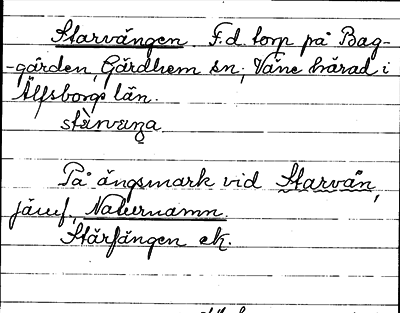 Starvängen. F.d. torp på Bag-
-gården, Gärdhem sn, Väne härad i
Älfsborgs län.
På ängsmark vid Starvän,
jämf. Naturnamn.
Stärfängen ek.